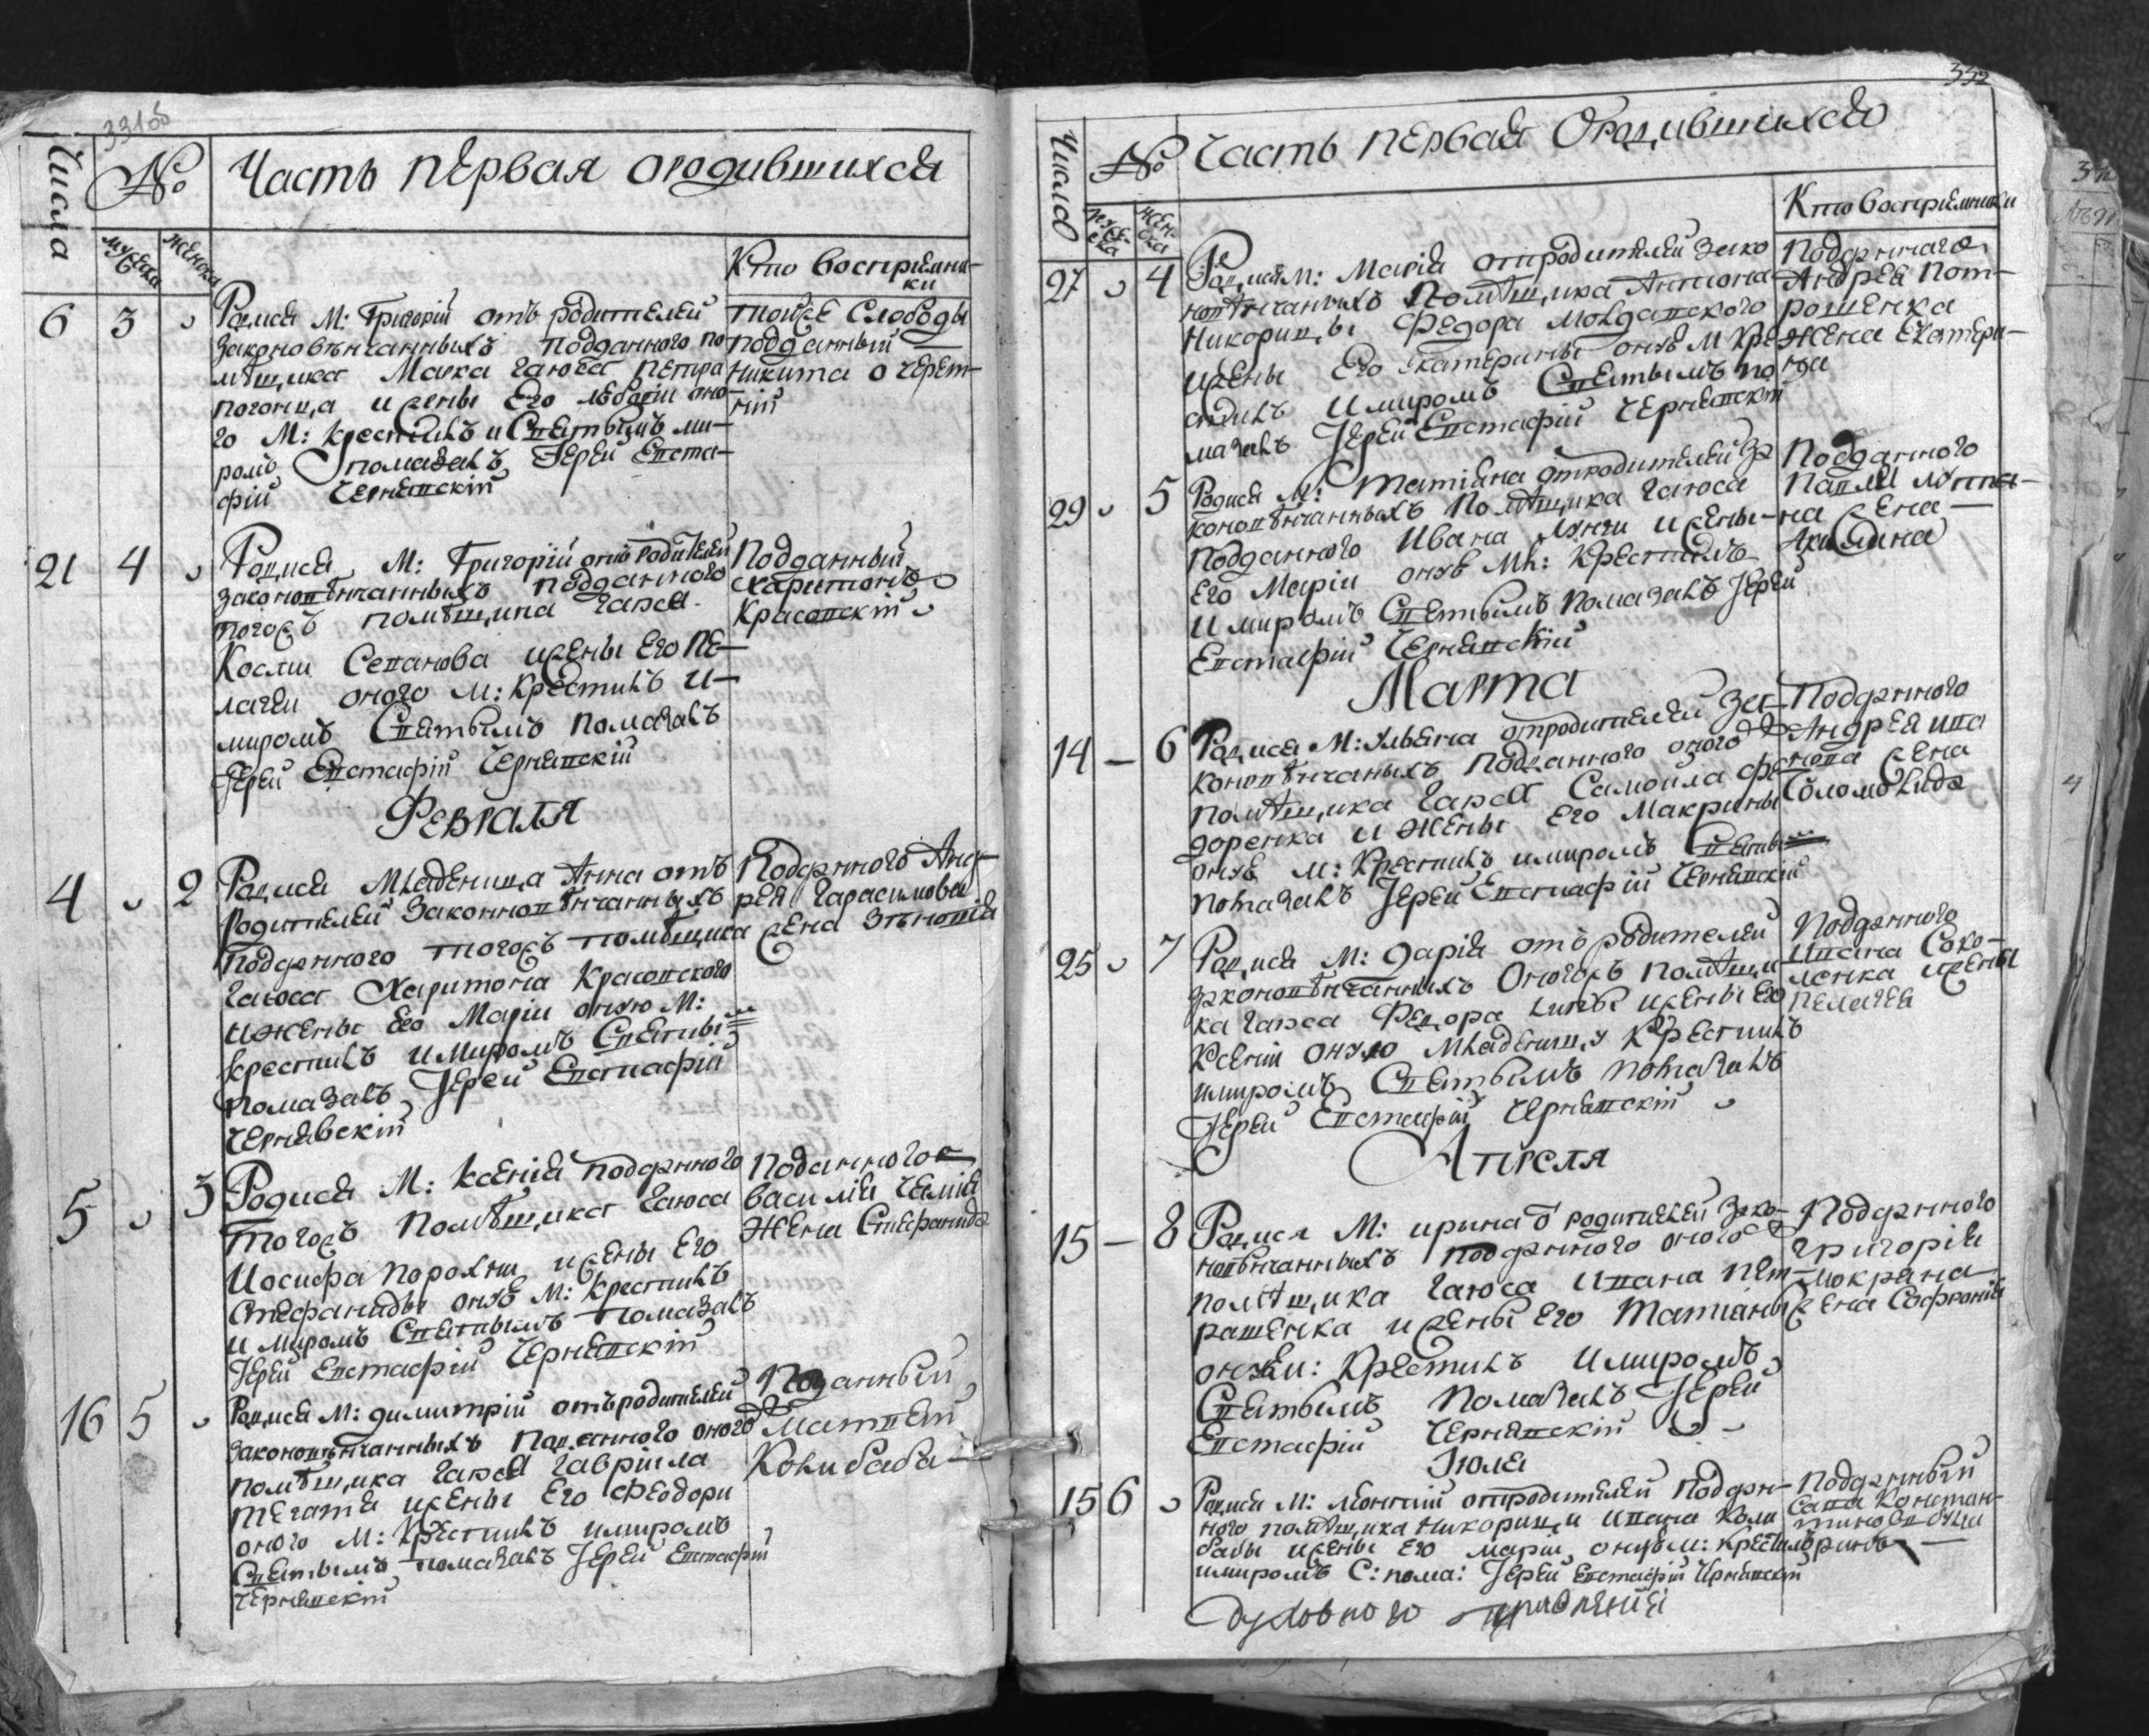 331об
Числа
№
Часть первая ородившихся
мужеска
женска
Кто восприемни-
ки
6 3
Родися М: Григорій отъ родителей
законовѣнчанныхъ подданного по
мѣщика Марка Гаюса Петра
погонца и жены Его оно-
го М: крестилъ и Святымъ ми-
ромъ помазалъ Іерей Евста-
фій Чернявскій
тойже Слободы
подданный
никита очерет-
ній
21 4
Родися М: Григорій отъ родителей
законовѣнчанныхъ подданного
тогожъ помѣщика Гаюса
Космы Сепанова жены Его Пе-
лагеи оного М: Крестилъ и
миромъ Святымъ помазалъ
Іерей Евстафій Чернявскій
Подданный
харитонъ
Красовскій
Февраля
4 2
Родися Младеница Анна отъ
родителей Законновѣнчанныхъ
Подданного тогожъ помѣщика
Гаюса Харитона Красовского
и жены Его Маріи оную М:
крестилъ и Миромъ Святы
Помазалъ Іерей Евстафій
Чернявскій
Подданного Анд-
рея Гарасимовы
жена Зѣновія
5 3
Родися М: Ксенія подданного
тогожъ Помѣщика Гаюса
Иосифа Порохни жены Его
Стефаниды онуе М: крестилъ
и Миромъ Святымъ Помазалъ
Іерей Евстафій Чернявскій
Поданного
василія
Жена Стефанида
16 5
Родися М: димитрій отъ родителей
законовѣнчанныхъ подданного оного
помѣщика Гаюса Гавріила
жены Его Феодори
оного М: Крестилъ имиромъ
Святымъ помазалъ Іерей Евстафій
Чернявскій
Подданный
Матвей
Колибаба
332
Числа
№
Часть первая Ородившихся
мужеска
женска
Кто восприемники
27 4
Родися М: Марія отродителей зако
новѣнчанныхъ Помѣщика Антона
Никорицы Федора Молдавского
жены Его Екатерины онуе М Кре
стилъ имиромъ Святымъ по
мазалъ Іерей Евстафій Чернявскій
Подданного
Андрея Пот-
рошенка
Жена Екатери-
на
29 5
Родися М: татіяна отродителей за
коновѣнчанныхъ Помѣщика Гаюса
Подданного Ивана жены
Его Маріи онуе Мл: Крестилъ
и миромъ Святымъ помазалъ Іерей
Евстафій Чернявскій
Подданного
Павла
на жена
Акилина
Марта
14 — 6
Родися М: Ульяна отродителей за
коновѣнчаныхъ Подданного оного
помѣщика Гаюса Самоила Фе
доренка и Жены Его Макрины
онуе М: Крестилъ имиромъ Святы
помазалъ Іерей Евстафій Чернявскій
Подданного
Андрея ива
нова жена
Соломонида
25 7
Родися М: Дарія отъ родителей
законовѣнчанныхъ Оногожъ помѣщи
ка Гаюса Федора Липы жены Его
Ксеніи оную Младеницу Крестилъ
имиромъ Святымъ помазалъ
Іерей Евстафій Чернявскій
Подданного
Ивана Соко-
ленка жены
пелагеѣ
Апреля
15 — 8
Родися М: ирина о родителей зако-
новѣнчанныхъ подданного оного
помѣщика Гаюса Ивана Пет-
рашенка жены Его Татіаны
онуем: Крестилъ имиромъ
Святымъ помазалъ Іерей
Евстафій Чернявскій
Подданного
Григорія
мокрана
жена Софронія
Іюля
15 6
Родися М: отродителей Поддан-
ного помѣщика Никорици Ивана Коли
бабы жены Его маріи онуем: крестилъ
имиромъ С: пома: Іерей Евстафій Чернявскій
Подданный
Сава Констан-
тинов
Духовного правленія